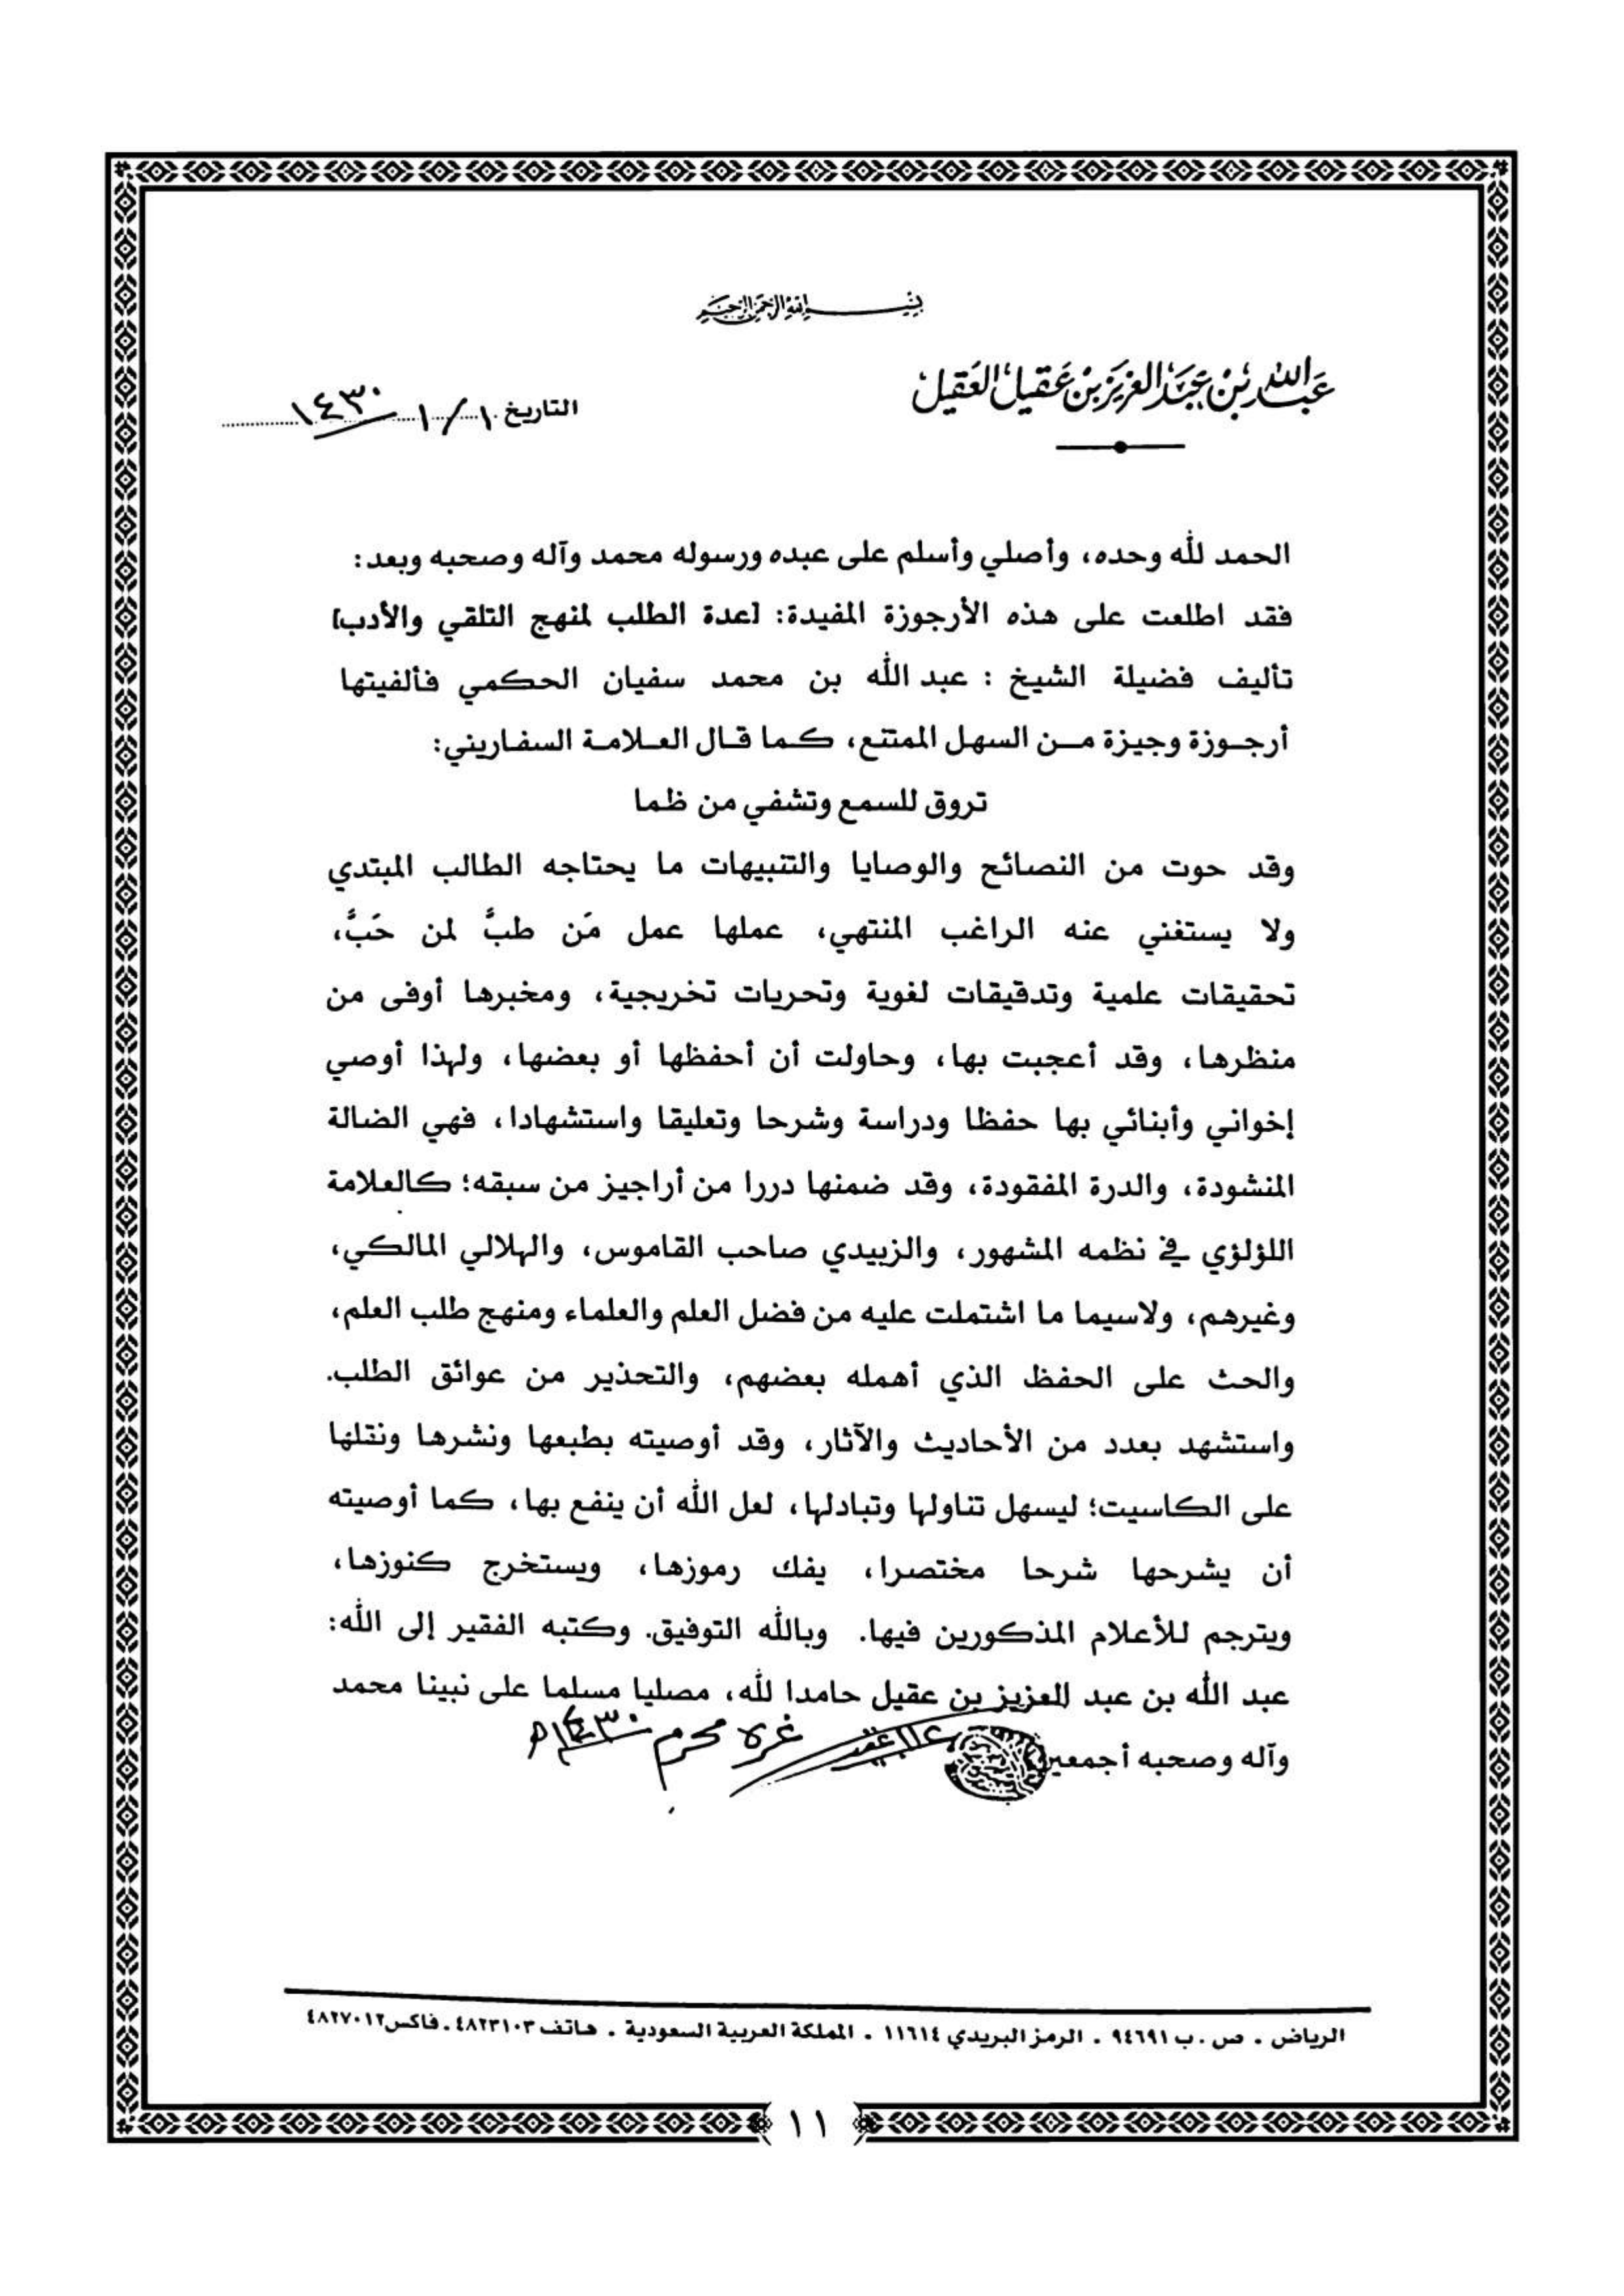 بسم الله الرحمن الرحيم
عبد الله بن عبد العزيز بن عقيل العقيل
التاريخ ١ / ١ / ١٤٣٠
الحمد لله وحده، وأصلي وأسلم على عبده ورسوله محمد وآله وصحبه وبعد:
فقد اطلعت على هذه الأرجوزة المفيدة: [عدة الطلب لمنهج التلقي والأدب]
تأليف فضيلة الشيخ : عبد الله بن محمد سفيان الحكمي فألفيتها
أرجوزة وجيزة من السهل الممتنع، كما قال العلامة السفاريني:
تروق للسمع وتشفي من ظما
وقد حوت من النصائح والوصايا والتنبيهات ما يحتاجه الطالب المبتدي
ولا يستغني عنه الراغب المنتهي، عملها عمل مَن طبَّ لمن حَبَّ،
تحقيقات علمية وتدقيقات لغوية وتحريات تخريجية، ومخبرها أوفى من
منظرها، وقد أعجبت بها، وحاولت أن أحفظها أو بعضها، ولهذا أوصي
إخواني وأبنائي بها حفظا ودراسة وشرحا وتعليقا واستشهادا، فهي الضالة
المنشودة، والدرة المفقودة، وقد ضمنها دررا من أراجيز من سبقه؛ كالعلامة
اللؤلؤي في نظمه المشهور، والزبيدي صاحب القاموس، والهلالي المالكي،
وغيرهم، ولاسيما ما اشتملت عليه من فضل العلم والعلماء ومنهج طلب العلم،
والحث على الحفظ الذي أهمله بعضهم، والتحذير من عوائق الطلب.
واستشهد بعدد من الأحاديث والآثار، وقد أوصيته بطبعها ونشرها ونقلها
على الكاسيت؛ ليسهل تناولها وتبادلها، لعل الله أن ينفع بها، كما أوصيته
أن يشرحها شرحا مختصرا، يفك رموزها، ويستخرج كنوزها،
ويترجم للأعلام المذكورين فيها. وبالله التوفيق. وكتبه الفقير إلى الله:
عبد الله بن عبد العزيز بن عقيل حامدا لله، مصليا مسلما على نبينا محمد
وآله وصحبه أجمعين غرة محرم ١٤٣٠هـ
الرياض . ص . ب ٩٤٦٩١ . الرمز البريدي ١١٦١٤ . المملكة العربية السعودية . هاتف ٤٨٢٣١٠٣ . فاكس ٤٨٢٧٠١٢
١١